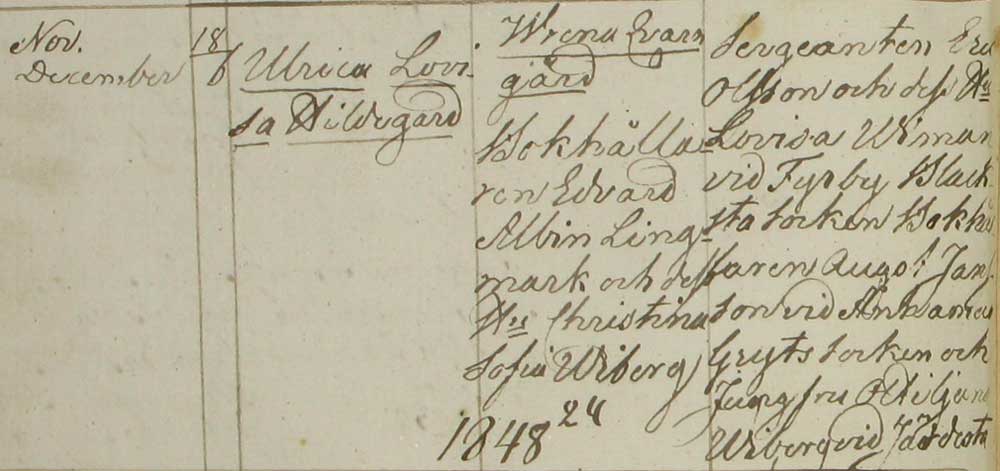 Nov. 18
December 6
Ulrica Lovi-
sa Hildegard
Wrena Qvarn
gård
Bokhålla-
ren Edvard
Albin Ling-
mark och dess
Hu Christina
Sofia Wiberg
1848 24
Sergeanten
Olsson och dess Hu
Lovisa Wiman
vid Fyrby Black-
sta Socken Bokhål
laren August Jans
son vid Änhammar
Gryts Socken och
Jungfru Ottiljana
Wiberg vid